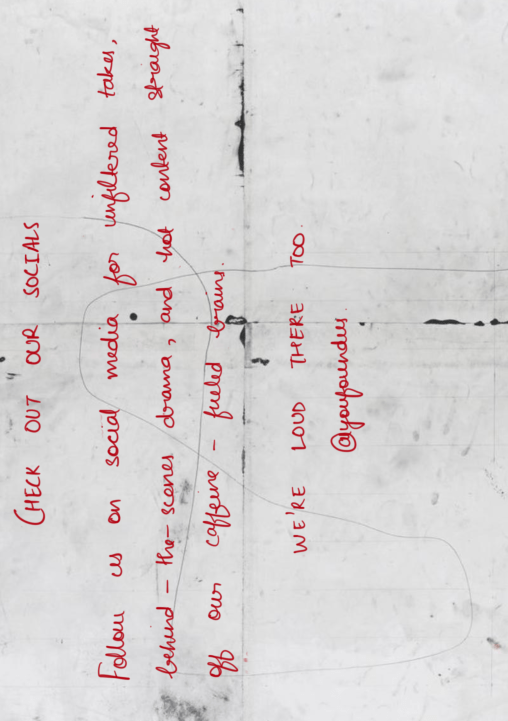 CHECK OUT OUR SOCIALS
Follow us on social media for unfiltered takes,
behind - the - scenes drama, and hot content straight
off our caffeine - fueled brains.
WE'RE LOUD THERE TOO.
@youfoundus